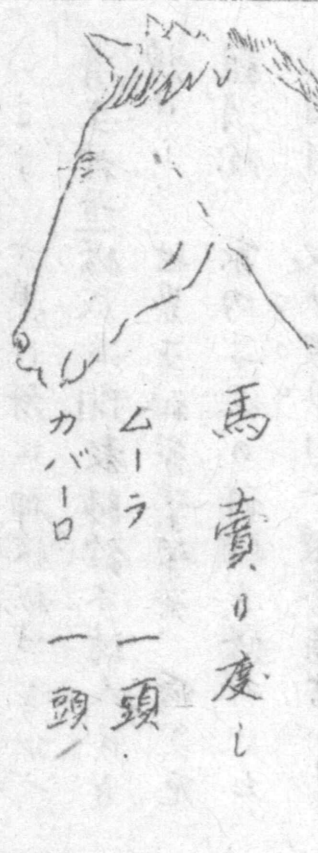 馬賣り度し
ムーラ 一頭
カバーロ 一頭